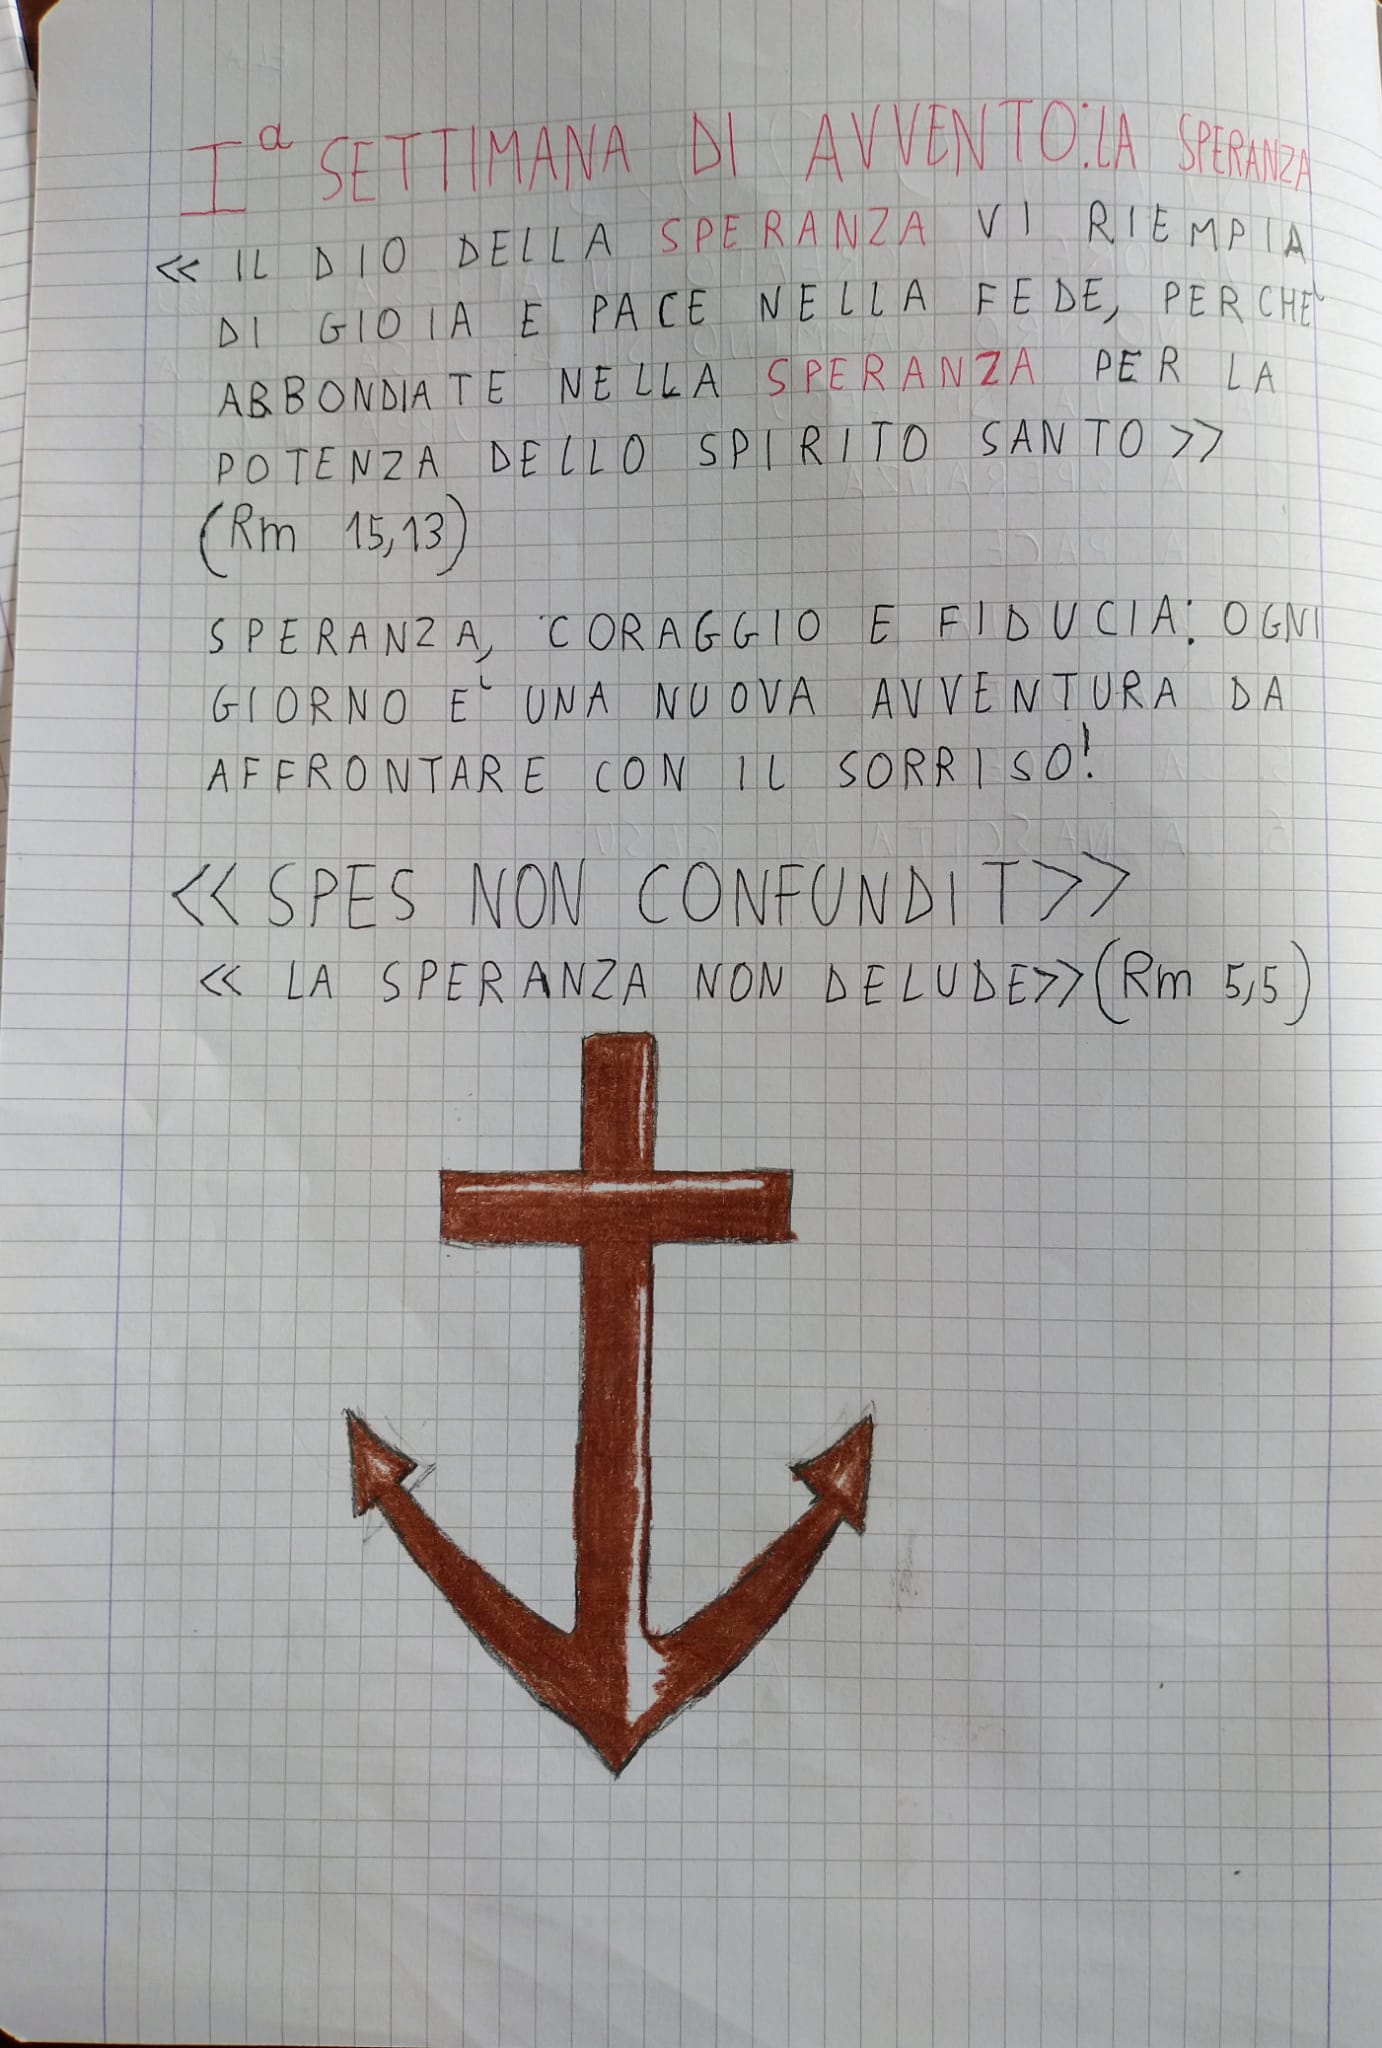 Iª SETTIMANA DI AVVENTO: LA SPERANZA
<< IL DIO DELLA SPERANZA VI RIEMPIA
DI GIOIA E PACE NELLA FEDE, PERCHE'
ABBONDIATE NELLA SPERANZA PER LA
POTENZA DELLO SPIRITO SANTO >>
(Rm 15,13)
SPERANZA, CORAGGIO E FIDUCIA: OGNI
GIORNO E' UNA NUOVA AVVENTURA DA
AFFRONTARE CON IL SORRISO!
<< SPES NON CONFUNDIT >>
<< LA SPERANZA NON DELUDE >> (Rm 5,5)